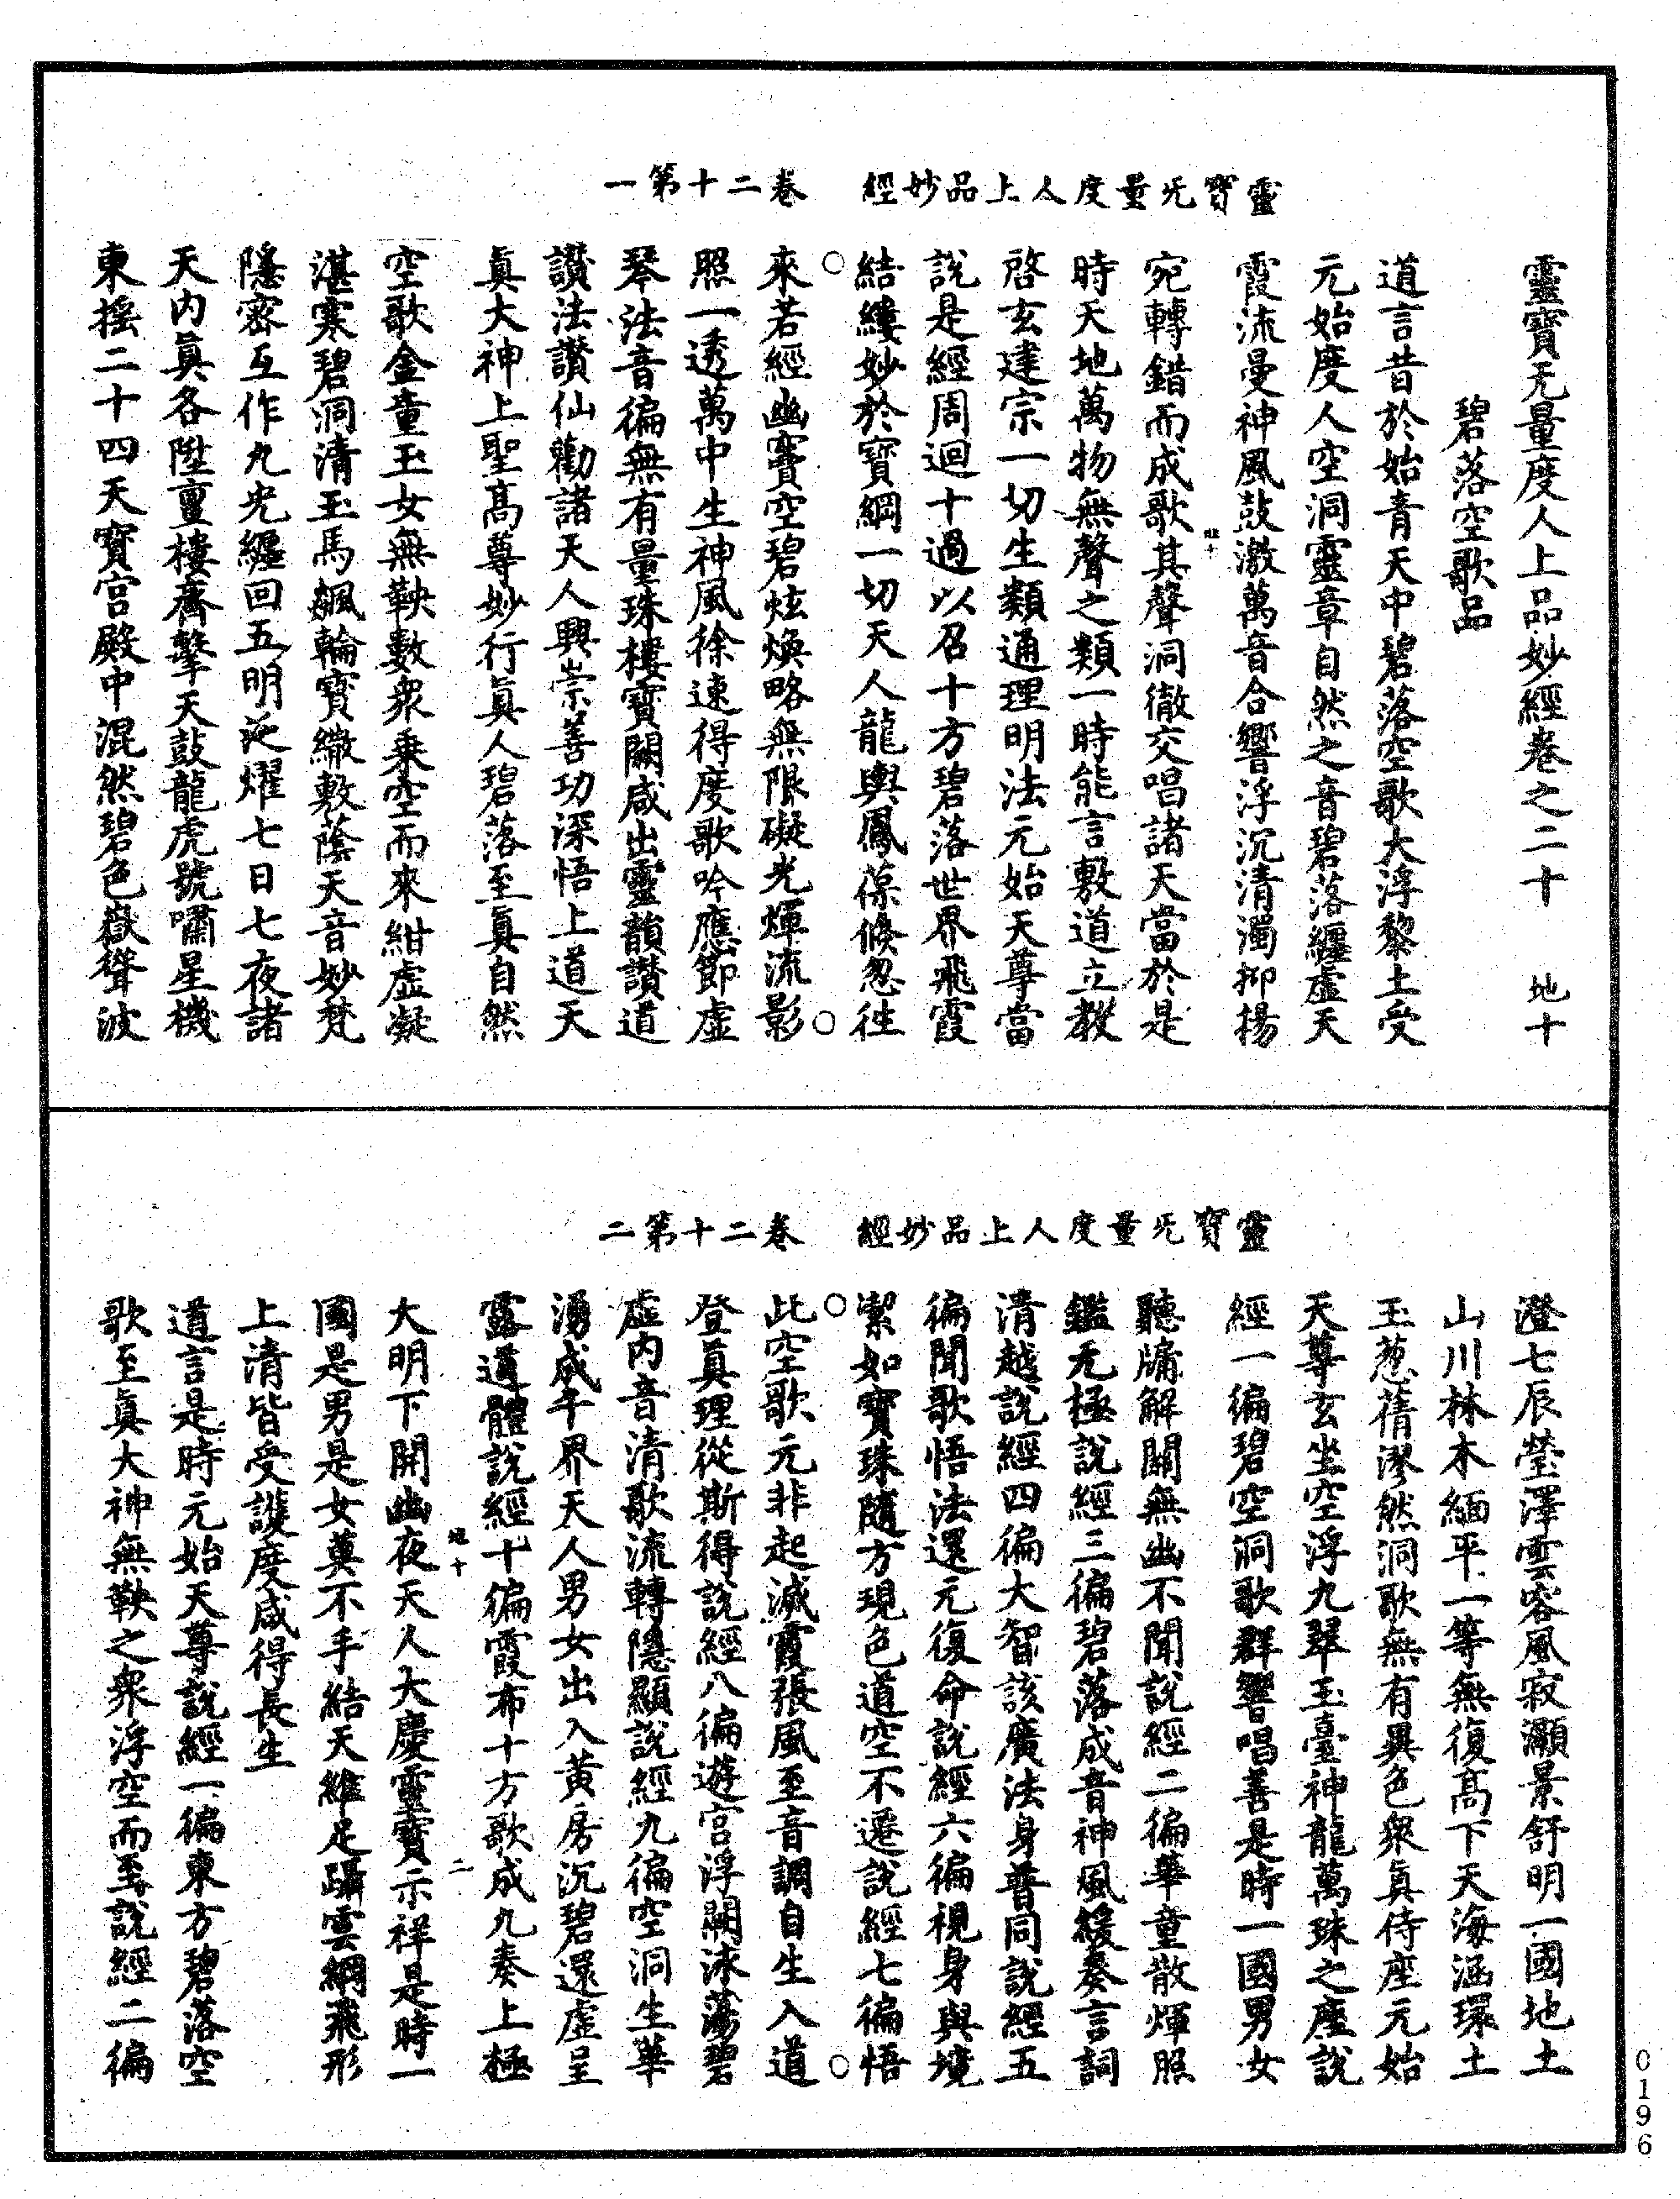 靈寶无量度人上品妙經　卷二十第一
靈寶无量度人上品妙經卷之二十　地十
碧落空歌品
道言昔於始青天中碧落空歌大浮黎土受
元始度人空洞靈章自然之音碧落纏虛天
霞流曼神風鼓激萬音合響浮沉清濁抑揚
地十
宛轉錯而成歌其聲洞徹交唱諸天當於是
時天地萬物無聲之類一時能言敷道立教
啓玄建宗一切生類通理明法元始天尊當
說是經周迴十過以召十方碧落世界飛霞
結縷妙於寶綱一切天人龍輿鳳葆倏忽往
○　○
來若經幽騫空碧炫煥略無限礙光煇流影
照一透萬中生神風徐速得度歌吟應節虛
琴法音徧無有量珠樓寶闕咸出靈韻讚道
讚法讚仙勸諸天人興崇善功深悟上道天
真大神上聖高尊妙行真人碧落至真自然
空歌金童玉女無鞅數衆乘空而來紺虛凝
湛寒碧洞清玉馬飆輪寶繖敷蔭天音妙梵
隱密互作九光纏回五明泛燿七日七夜諸
天內真各陞亶樓齊擊天鼓龍虎號嘯星機
東搖二十四天寶宮殿中混然碧色嶽聳波
靈寶无量度人上品妙經　卷二十第二
澄七辰瑩澤雲容風寂灝景舒明一國地土
山川林木緬平一等無復高下天海涵環土
玉葱蒨漻然洞歌無有異色衆真侍座元始
天尊玄坐空浮九翠玉臺神龍萬珠之座說
經一徧碧空洞歌群響唱善是時一國男女
聽牖解關無幽不聞說經二徧華童散煇照
鑑无極說經三徧碧落成音神風緩奏言詞
清越說經四徧大智該廣法身普同說經五
徧聞歌悟法還元復命說經六徧視身與境
潔如寶珠隨方現色道空不遷說經七徧悟
○　○
此空歌元非起滅霞張風至音調自生入道
登真理從斯得說經八徧遊宮浮闕涑蕩碧
虛內音清歌流轉隱顯說經九徧空洞生華
湧成千界天人男女出入黃房沉碧還虛呈
露道體說經十徧霞布十方歌成九奏上極
地十　二
大明下開幽夜天人大慶靈寶示祥是時一
國是男是女莫不手結天維足躡雲綱飛形
上清皆受護度咸得長生
道言是時元始天尊說經一徧東方碧落空
歌至真大神無鞅之衆浮空而至說經二徧
0196